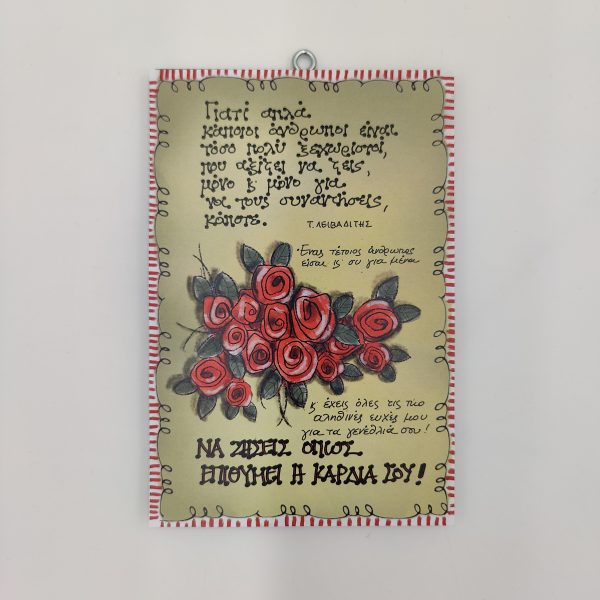 Γιατί απλά
κάποιοι άνθρωποι είναι
τόσο πολύ ξεχωριστοί,
που αξίζει να ζεις,
μόνο κ' μόνο για
να τους συναντήσεις,
κάποτε.
Τ. ΛΕΙΒΑΔΙΤΗΣ
Ένας τέτοιος άνθρωπος
είσαι κ' συ για μένα
κ' έχεις όλες τις πιο
αληθινές ευχές μου
για τα γενέθλιά σου!
ΝΑ ΖΗΣΕΙΣ ΟΠΩΣ
ΕΠΙΘΥΜΕΙ Η ΚΑΡΔΙΑ ΣΟΥ!